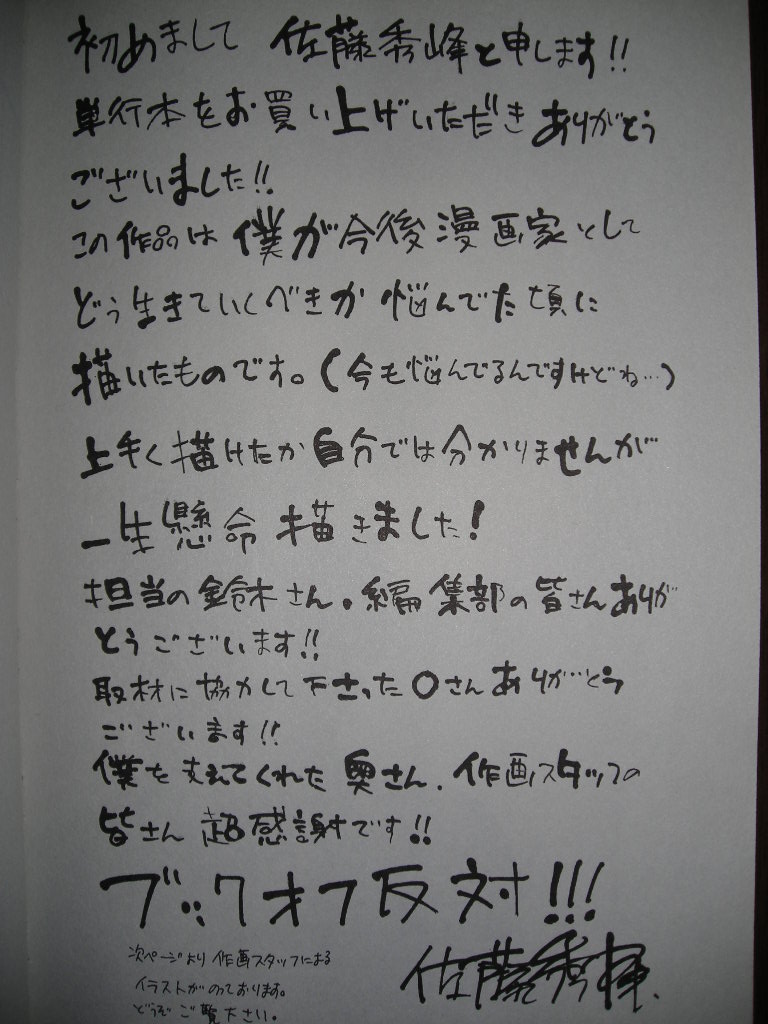 初めまして 佐藤秀峰と申します!!
単行本をお買い上げいただきありがとう
ございました!!
この作品は僕が今後漫画家として
どう生きていくべきか悩んでた頃に
描いたものです。(今も悩んでるんですけどね…)
上手く描けたか自分では分かりませんが
一生懸命描きました!
担当の鈴木さん。編集部の皆さんありが
とうございます!!
取材に協力して下さった〇さんありがとう
ございます!!
僕を支えてくれた奥さん、作画スタッフの
皆さん超感謝です!!
ブックオフ反対!!!
次ページより作画スタッフによる
イラストがのっております。
どうぞご覧下さい。
佐藤秀峰